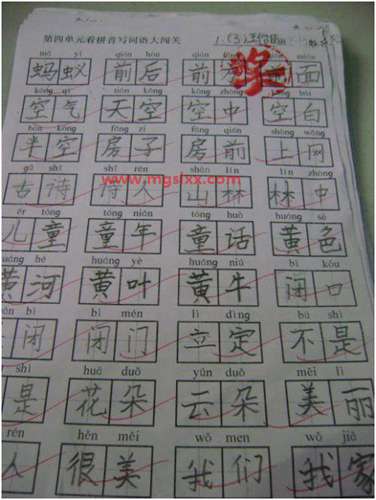 第四单元看拼音写词语大闯关
mǎ yǐ qián hòu qián
蚂蚁 前后 前 面
kōng qì tiān kōng kōng zhōng kōng bái
空气 天空 空中 空白
bàn kōng fáng zi fáng qián shàng wǎng
半空 房子 房前 上网
gǔ shī shī rén shān lín lín zhōng
古诗 诗人 山林 林中
www.mgslxx.com
ér tóng tóng nián tóng huà huáng sè
儿童 童年 童话 黄色
huáng hé huáng yè huáng niú bì kǒu
黄河 黄叶 黄牛 闭口
bì mén lì dìng bú shì
闭 闭门 立定 不是
shì huā duǒ yún duǒ měi lì
是 花朵 云朵 美丽
rén hěn měi wǒ men wǒ jiā
人 很美 我们 我家